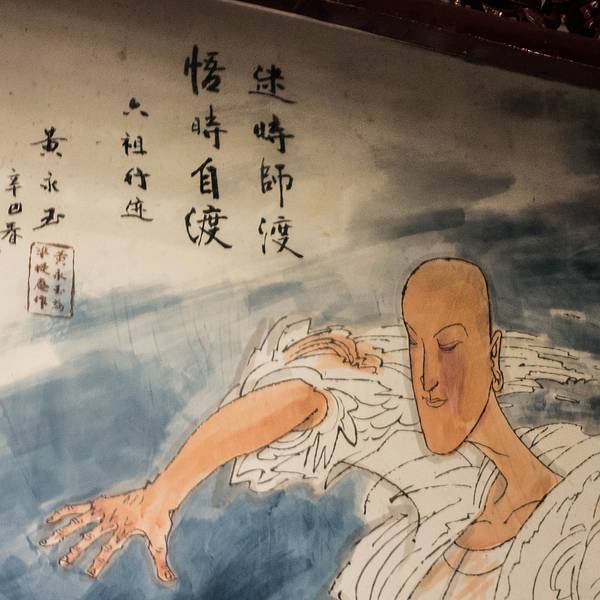 迷時師渡
悟時自渡
六祖行迹
黄永玉
辛巳春
黄永玉為
準提庵作